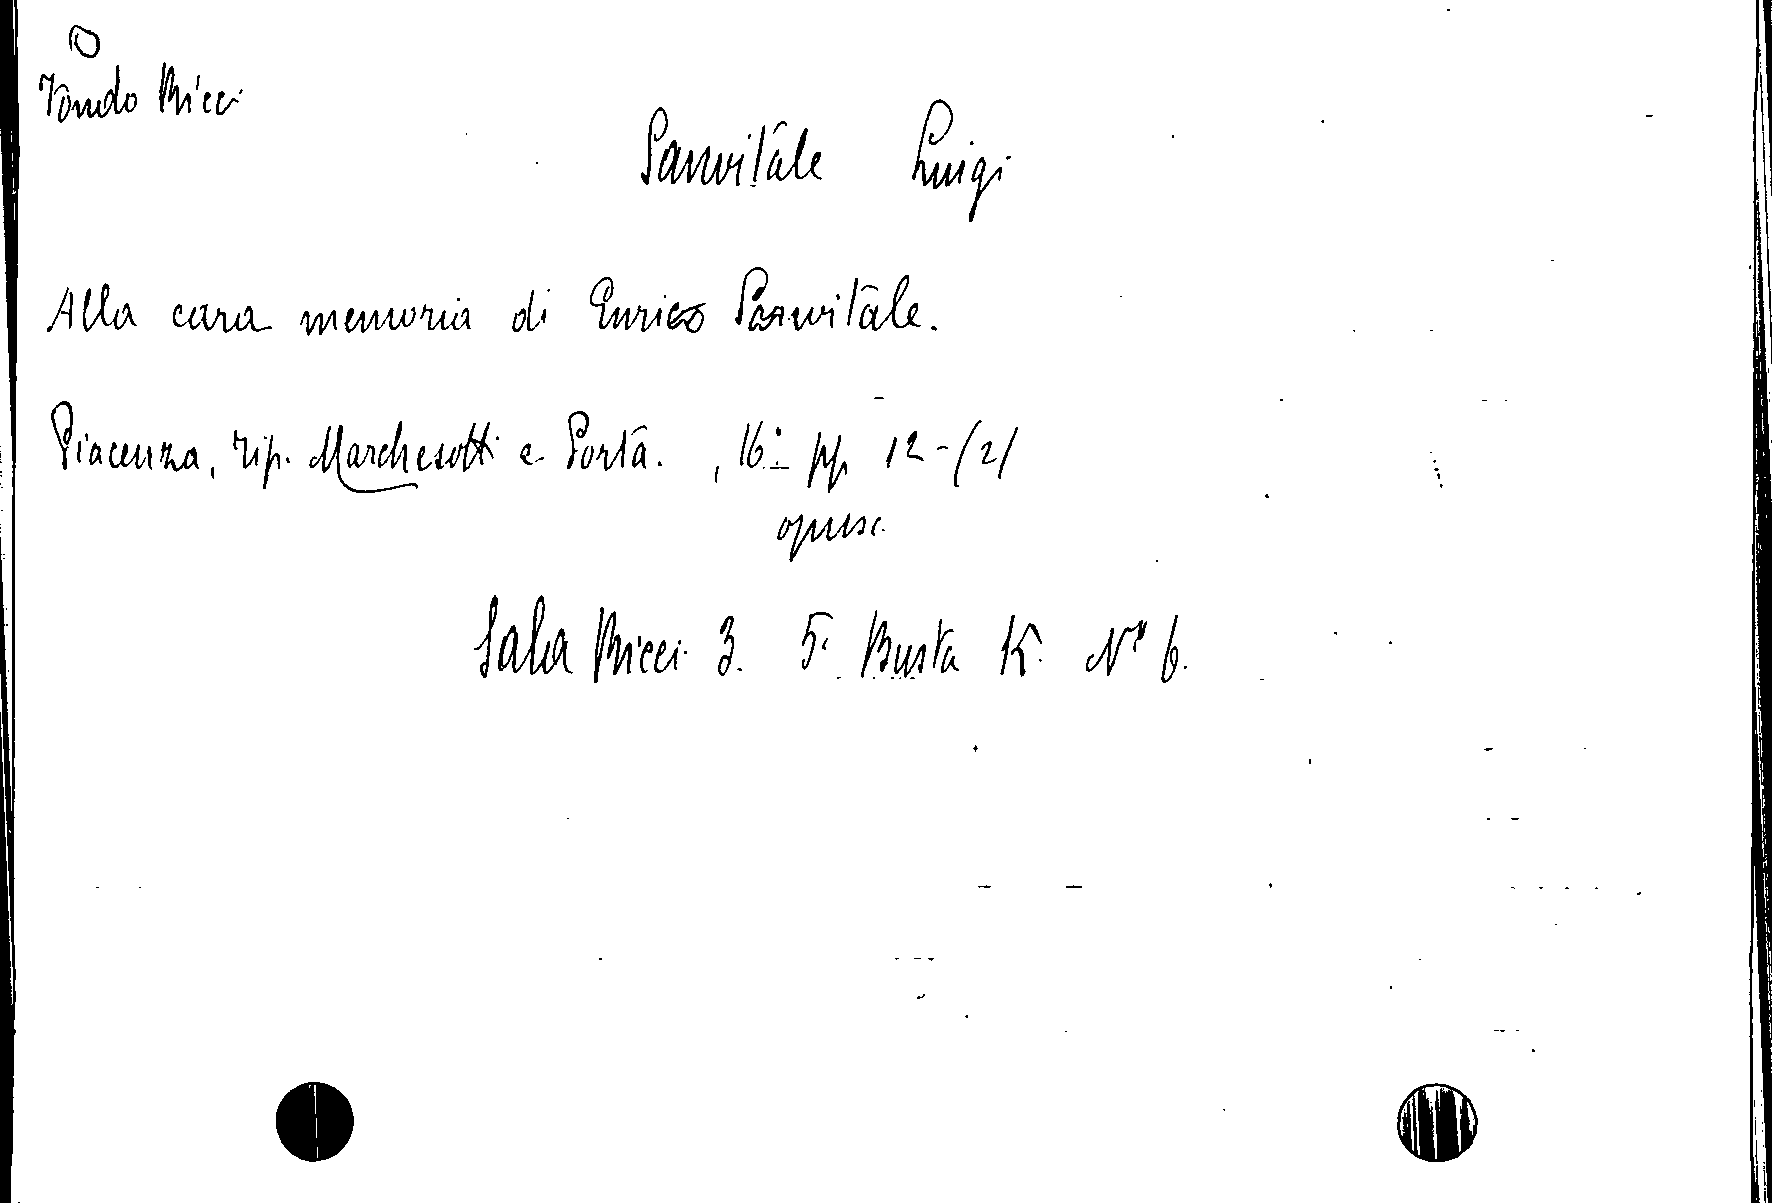 Fondo Ricci
Sanvitale Luigi
Alla cara memoria di Enrico Sanvitale.
Piacenza, tip. Marchesotti e Porta. , 16° pp 12-(2)
opusc.
Sala Ricci 3. 5. Busta K. N° 6.